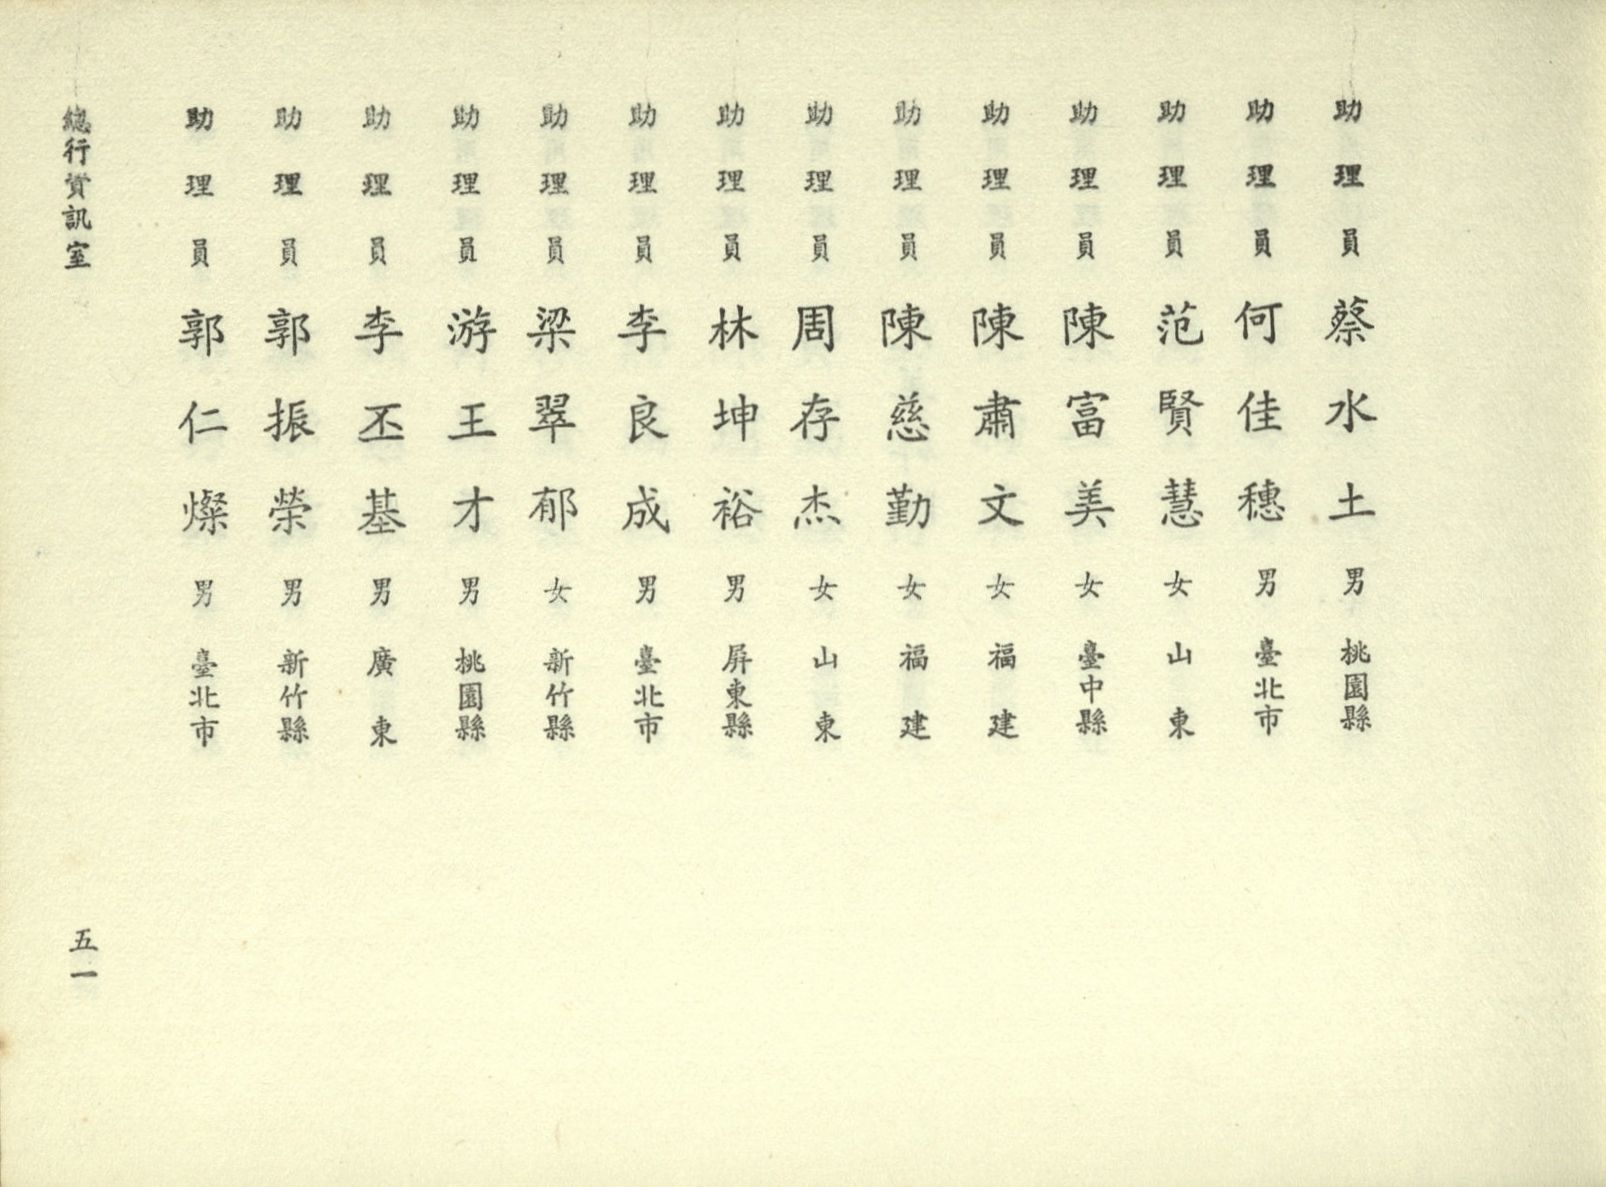 助理員 蔡水土 男 桃園縣
助理員 何佳穗 男 臺北市
助理員 范賢慧 女 山東
助理員 陳富美 女 臺中縣
助理員 陳肅文 女 福建
助理員 陳慈勤 女 福建
助理員 周存杰 女 山東
助理員 林坤裕 男 屏東縣
助理員 李良成 男 臺北市
助理員 梁翠郁 女 新竹縣
助理員 游王才 男 桃園縣
助理員 李丕基 男 廣東
助理員 郭振榮 男 新竹縣
助理員 郭仁燦 男 臺北市
總行資訊室 五一